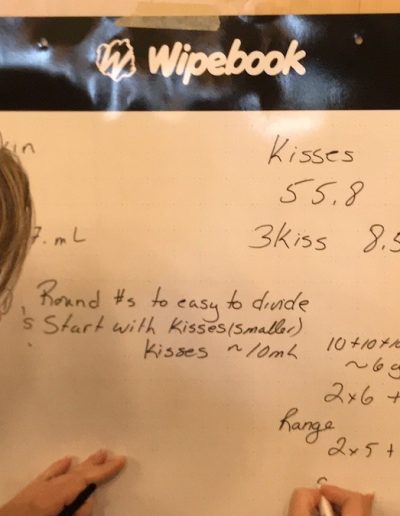 Wipebook
Kisses
55.8
7.mL
3Kiss 8.5
Round #s to easy to divide
Start with Kisses (smaller)
Kisses ~10mL
10+10+10
~6
2x6 +
Range
2x5 +